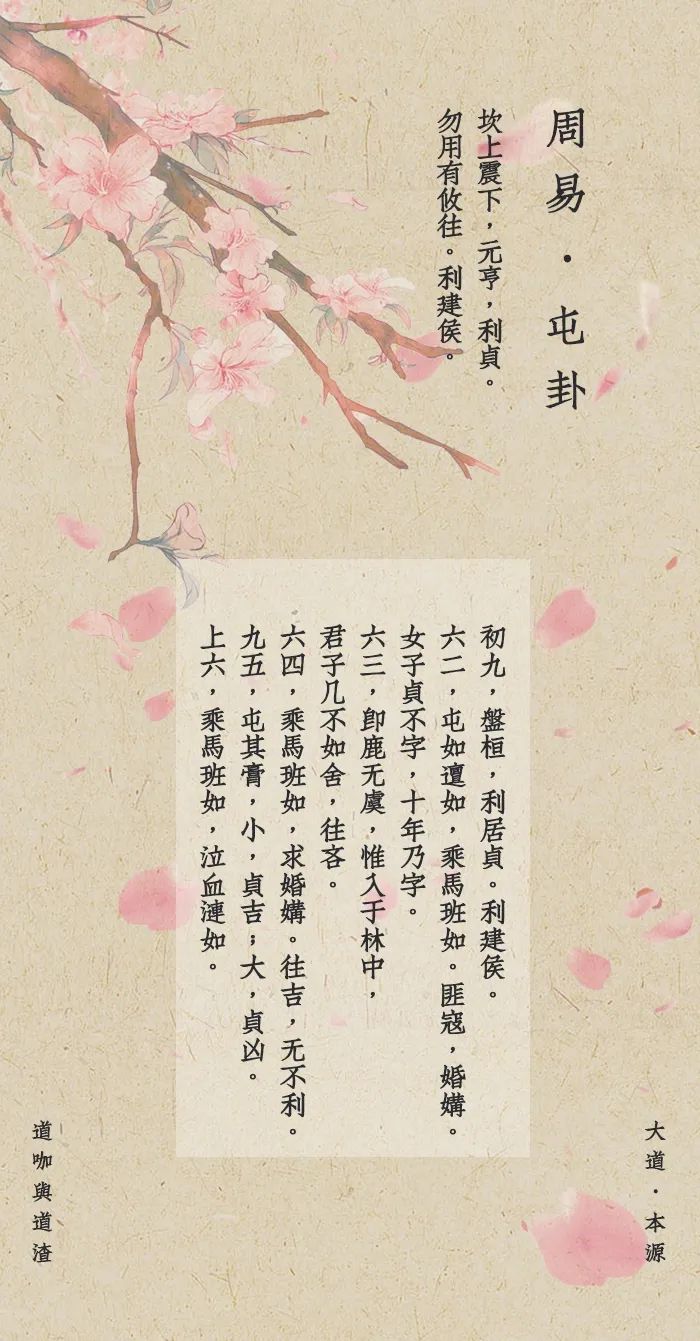 周易·屯卦
坎上震下，元亨，利貞。
勿用有攸往。利建侯。
初九，盤桓，利居貞。利建侯。
六二，屯如邅如，乘馬班如。匪寇，婚媾。
女子貞不字，十年乃字。
六三，即鹿无虞，惟入于林中，
君子几不如舍，往吝。
六四，乘馬班如，求婚媾。往吉，无不利。
九五，屯其膏，小，貞吉；大，貞凶。
上六，乘馬班如，泣血漣如。
大道·本源
道咖與道渣